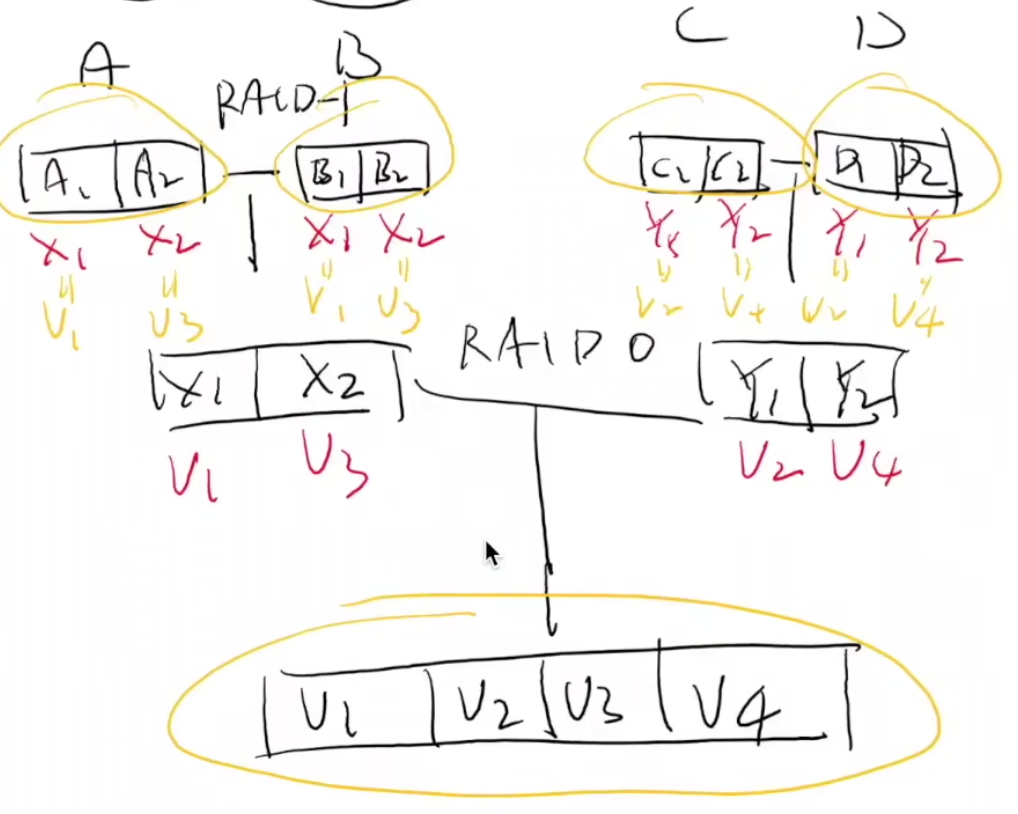 A B C D
RAID-1
A1 A2 B1 B2 C2 C2 D1 D2
X1 X2 X1 X2 Y2 Y1 Y2
" " " " " " " "
V1 V3 V1 V3 V2 V4 V2 V4
RAID 0
X1 X2 Y1 Y2
V1 V3 V2 V4
V1 V2 V3 V4